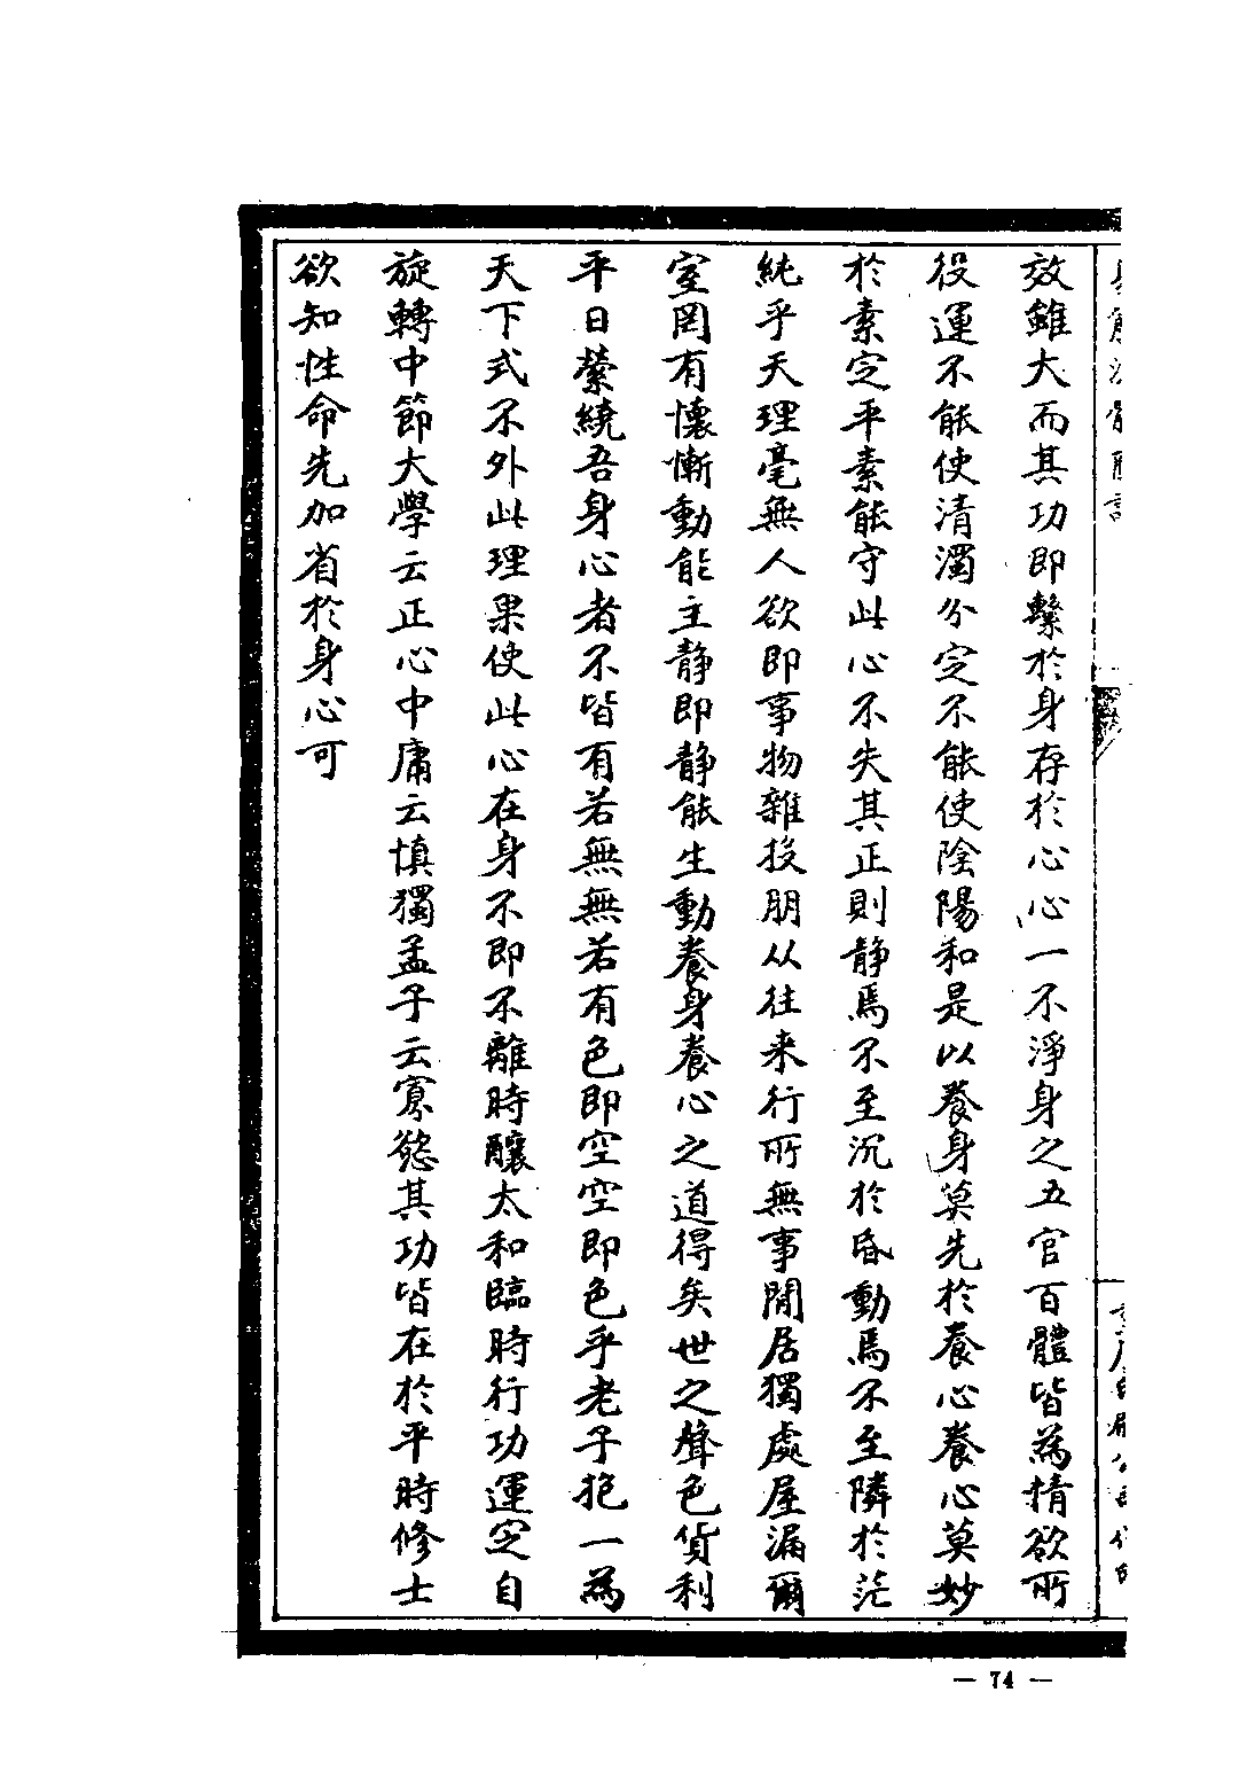 效雖大而其功即繫於身存於心心一不淨身之五官百體皆為情欲所
役運不能使清濁分定不能使陰陽和是以養身莫先於養心養心莫妙
於素定平素能守此心不失其正則靜焉不至沉於昏動焉不至隣於茫
純乎天理毫無人欲即事物雜投朋从往来行所無事閒居獨處屋漏爾
室罔有懷慚動能主静即静能生動養身養心之道得矣世之聲色貨利
平日縈繞吾身心者不皆有若無無若有色即空空即色乎老子抱一為
天下式不外此理果使此心在身不即不離時釀太和臨時行功運定自
旋轉中節大學云正心中庸云慎獨孟子云寡慾其功皆在於平時修士
欲知性命先加省於身心可
— 74 —